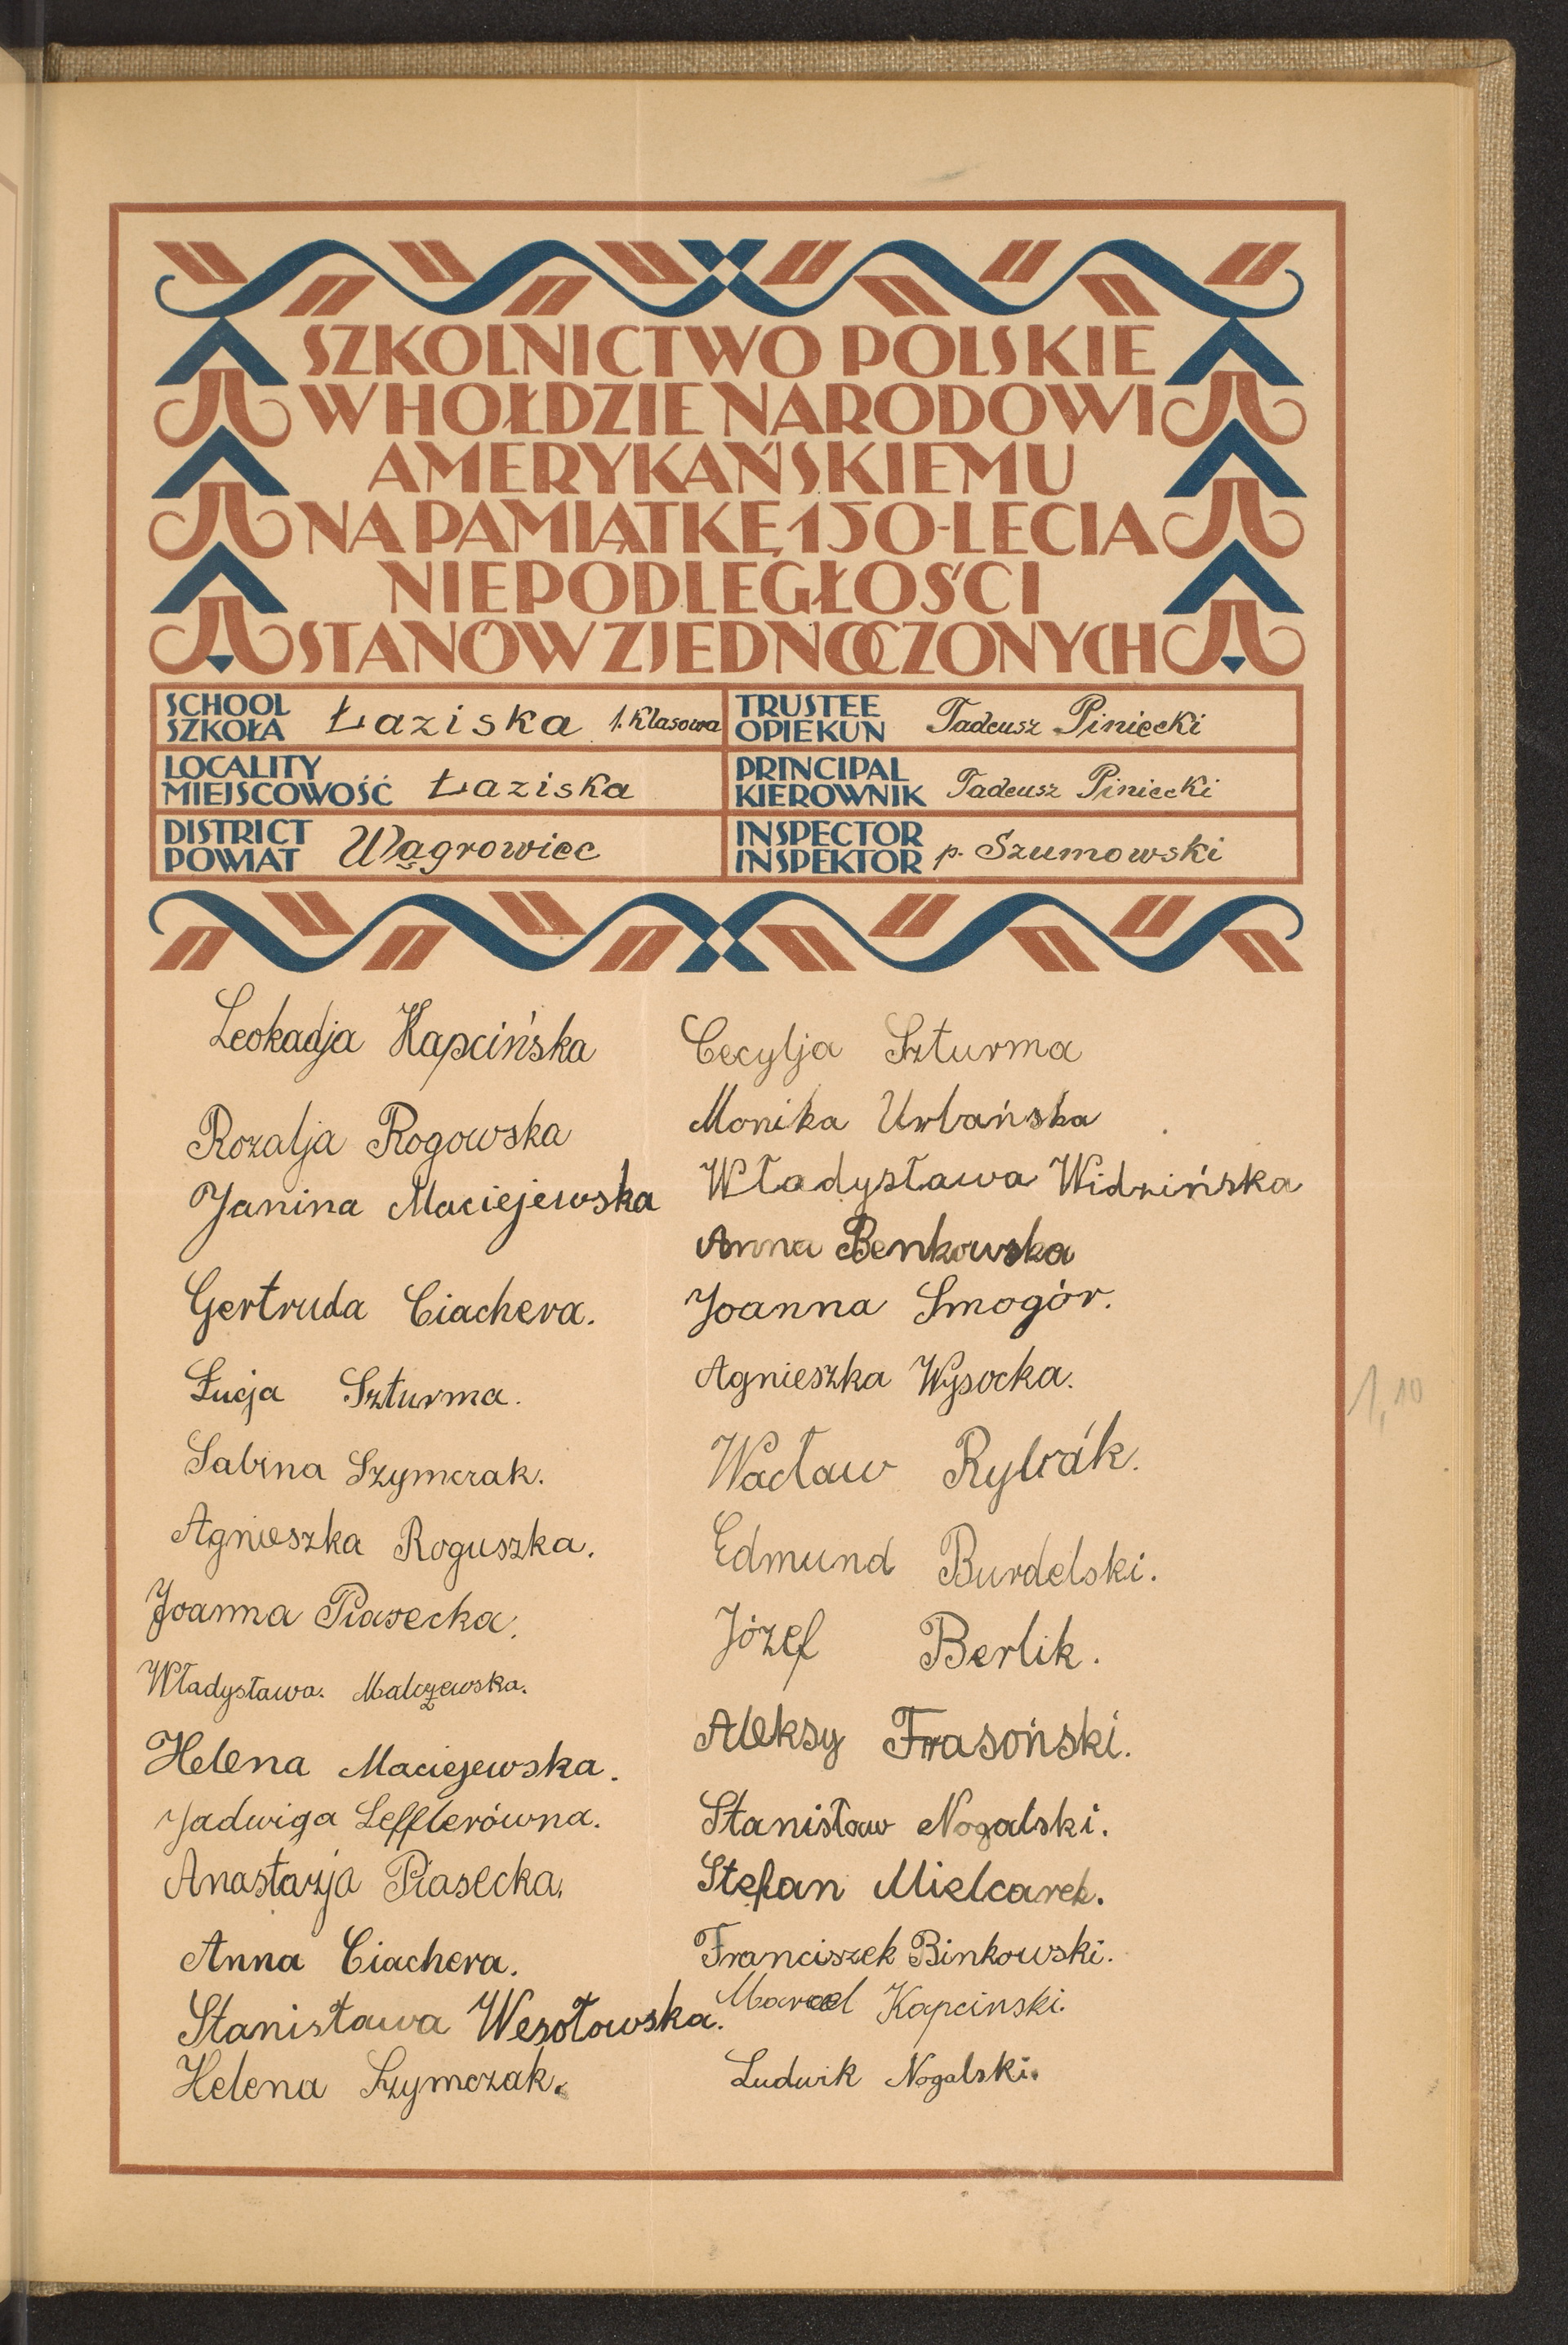 SZKOLNICTWO POLSKIE
W HOŁDZIE NARODOWI
AMERYKAŃSKIEMU
NA PAMIĄTKĘ 150-LECIA
NIEPODLEGŁOŚCI
STANÓW ZJEDNOCZONYCH
SCHOOL
SZKOŁA Łaziska 1. Klasowa
TRUSTEE
OPIEKUN Tadeusz Piniecki
LOCALITY
MIEJSCOWOŚĆ Łaziska
PRINCIPAL
KIEROWNIK Tadeusz Piniecki
DISTRICT
POWIAT Wągrowiec
INSPECTOR
INSPEKTOR p. Szumowski
Leokadja Kapcińska
Rozalja Rogowska
Janina Maciejewska
Gertruda Ciachera.
Łucja Szturma.
Sabina Szymczak.
Agnieszka Roguszka.
Joanna Piasecka.
Władysława. Malczewska.
Helena Maciejewska.
Jadwiga Lefflerówna.
Anastazja Piasecka.
Anna Ciachera.
Stanisława Wesołowska.
Helena Szymczak.
Cecylja Szturma
Monika Urbańska
Władysława Widzińska
Anna Benkowska
Joanna Smogór.
Agnieszka Wysocka.
Wacław Rybrák.
Edmund Burdelski.
Józef Berlik.
Aleksy Frasoński.
Stanisław Nogalski.
Stefan Mielcarek.
Franciszek Binkowski.
Marcel Kapcinski.
Ludwik Nogalski.
1,10